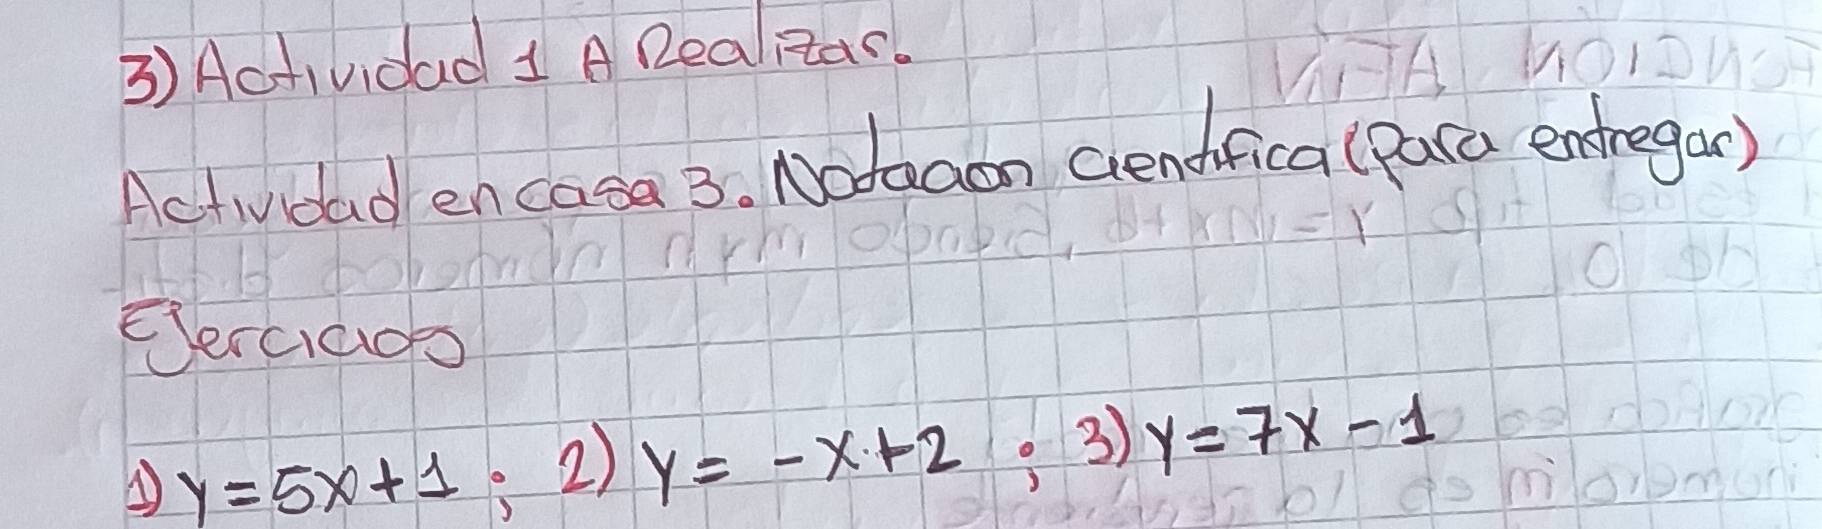 3) Actividad 1 A Realizar.
Actividad en casa 3. Notacion cientifica (para entregar)
Ejercicios
1) y = 5x + 1 ; 2) y = -x + 2 ; 3) y = 7x - 1